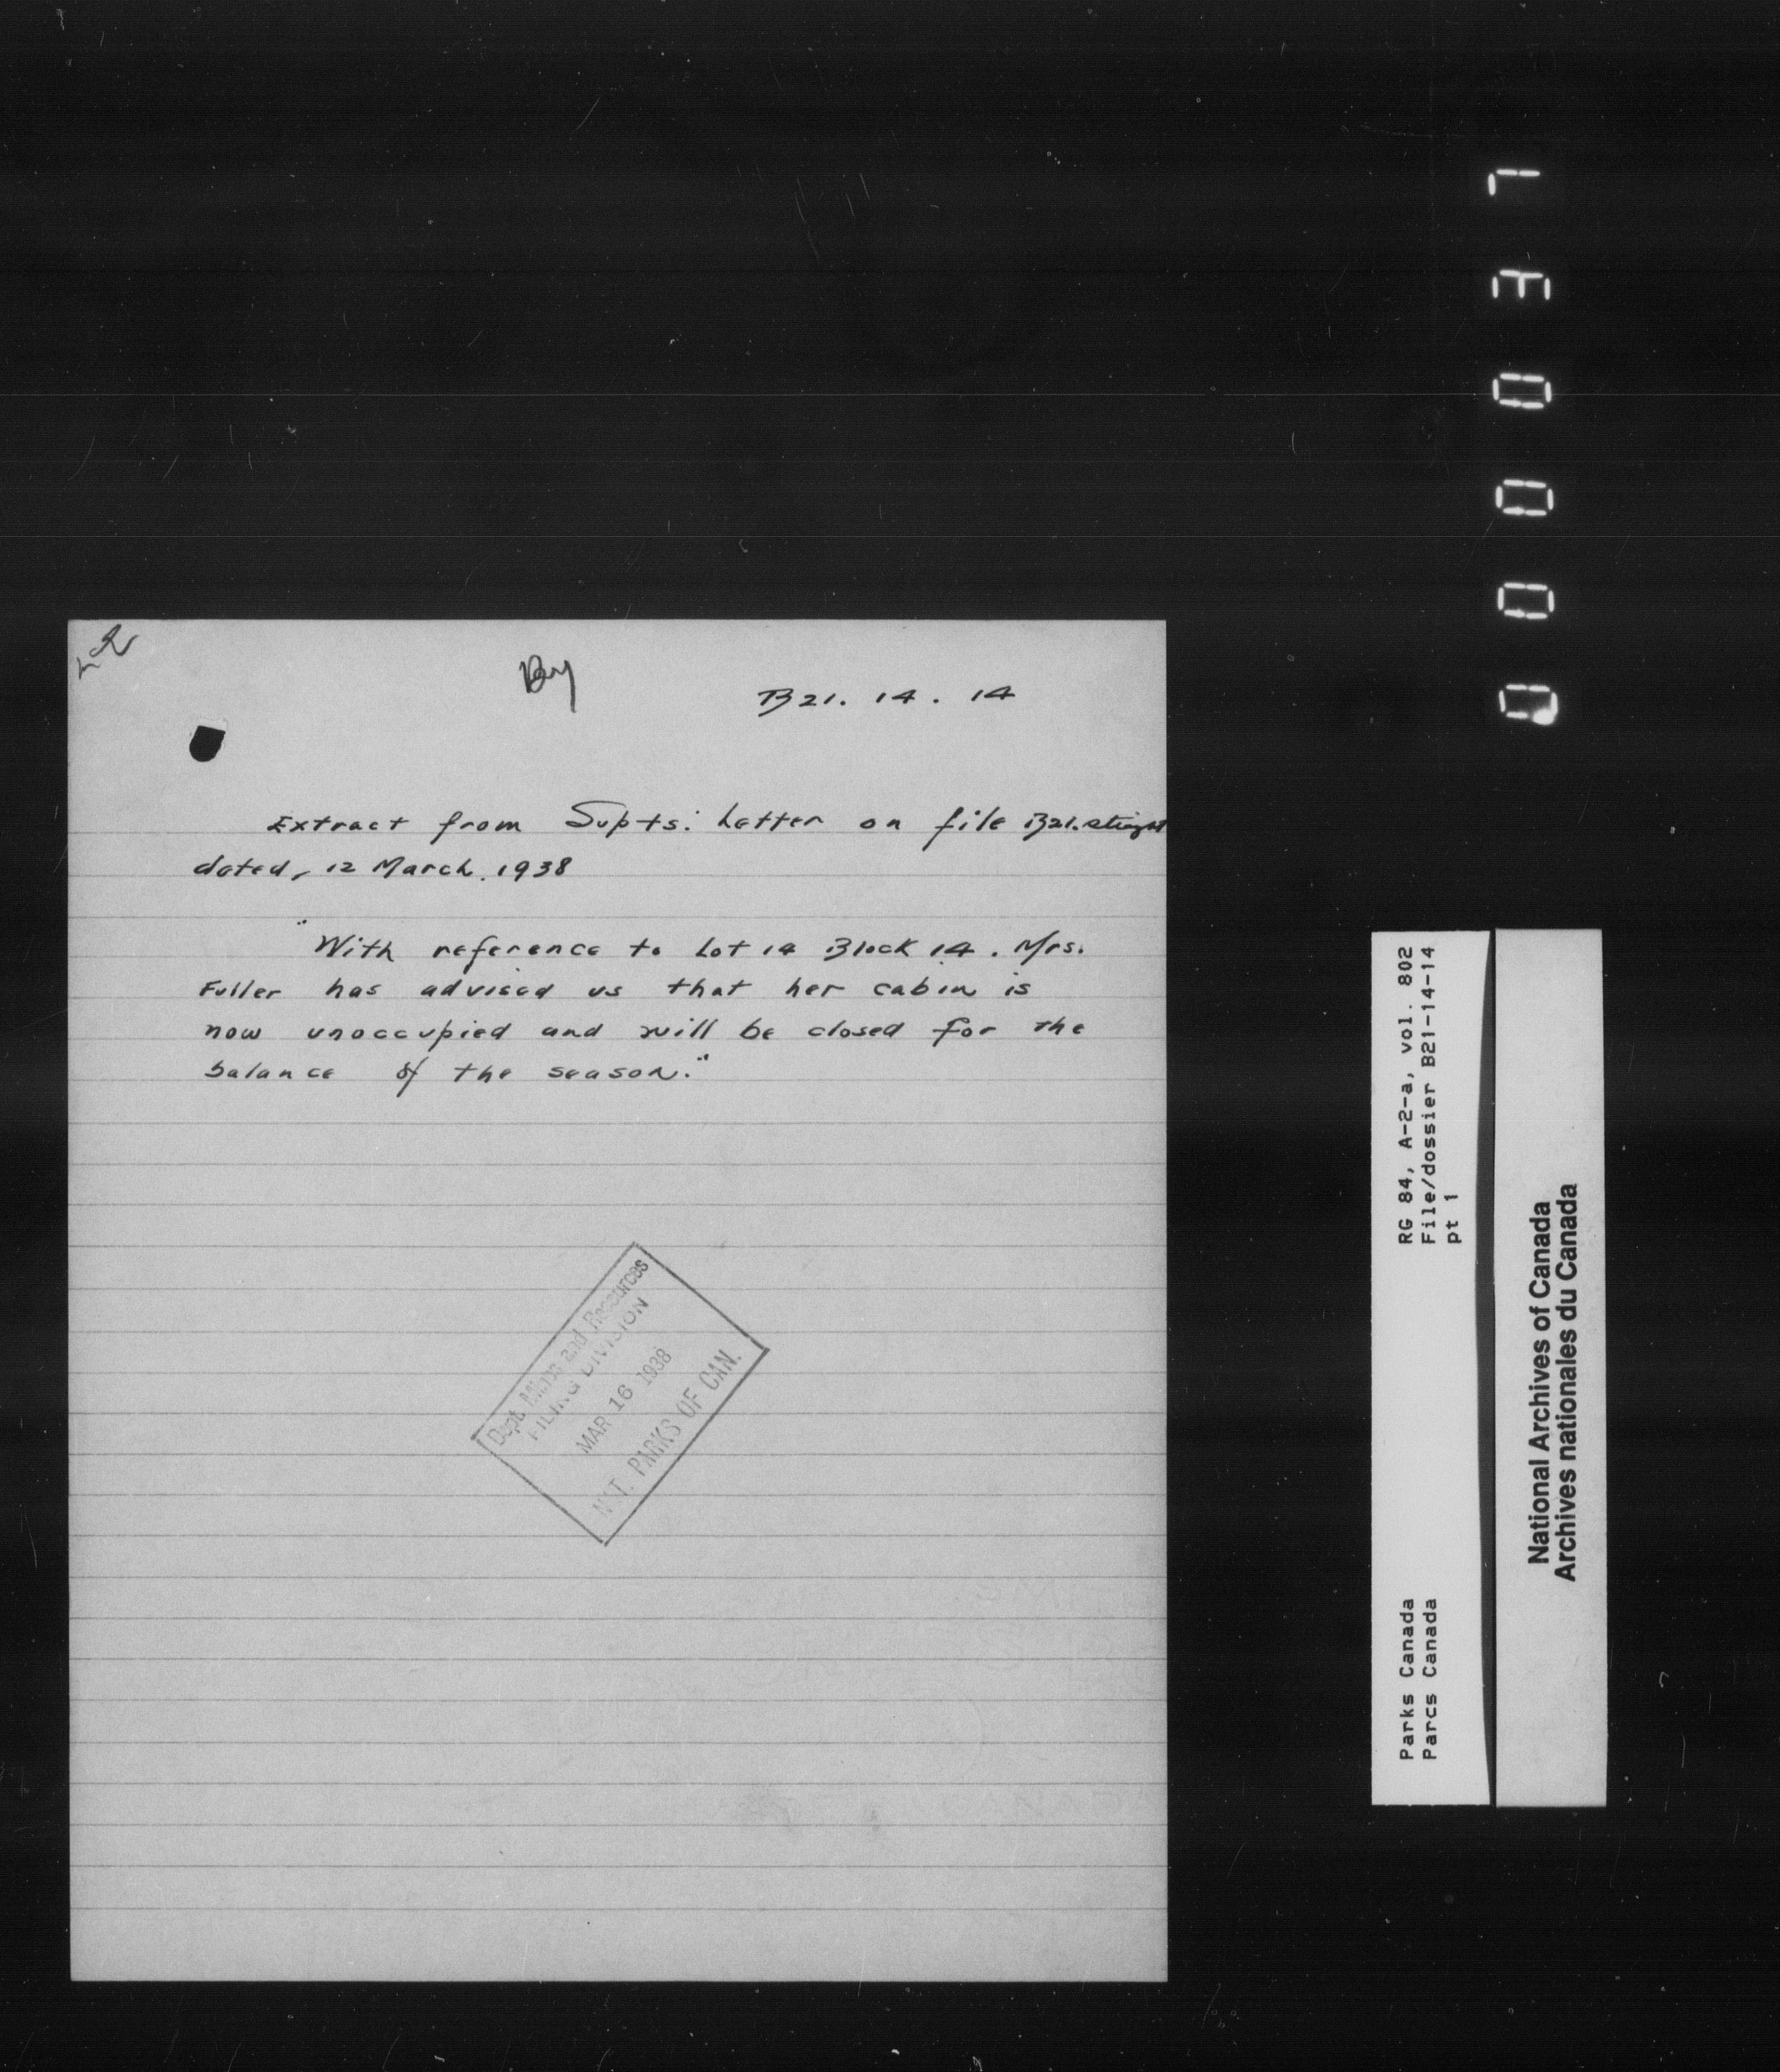 By
B21. 14. 14
Extract from Supts. Letter on file B21. straight
dated, 12 March. 1938
"With reference to Lot 14 Block 14. Mrs.
Fuller has advised us that her cabin is
now unoccupied and will be closed for the
balance of the season."
Dept. Mines and Resources
FILING DIVISION
MAR 16 1938
NAT. PARKS OF CAN.
RG 84, A-2-a, vol. 802
File/dossier B21-14-14
pt 1
Parks Canada
Parcs Canada
National Archives of Canada
Archives nationales du Canada